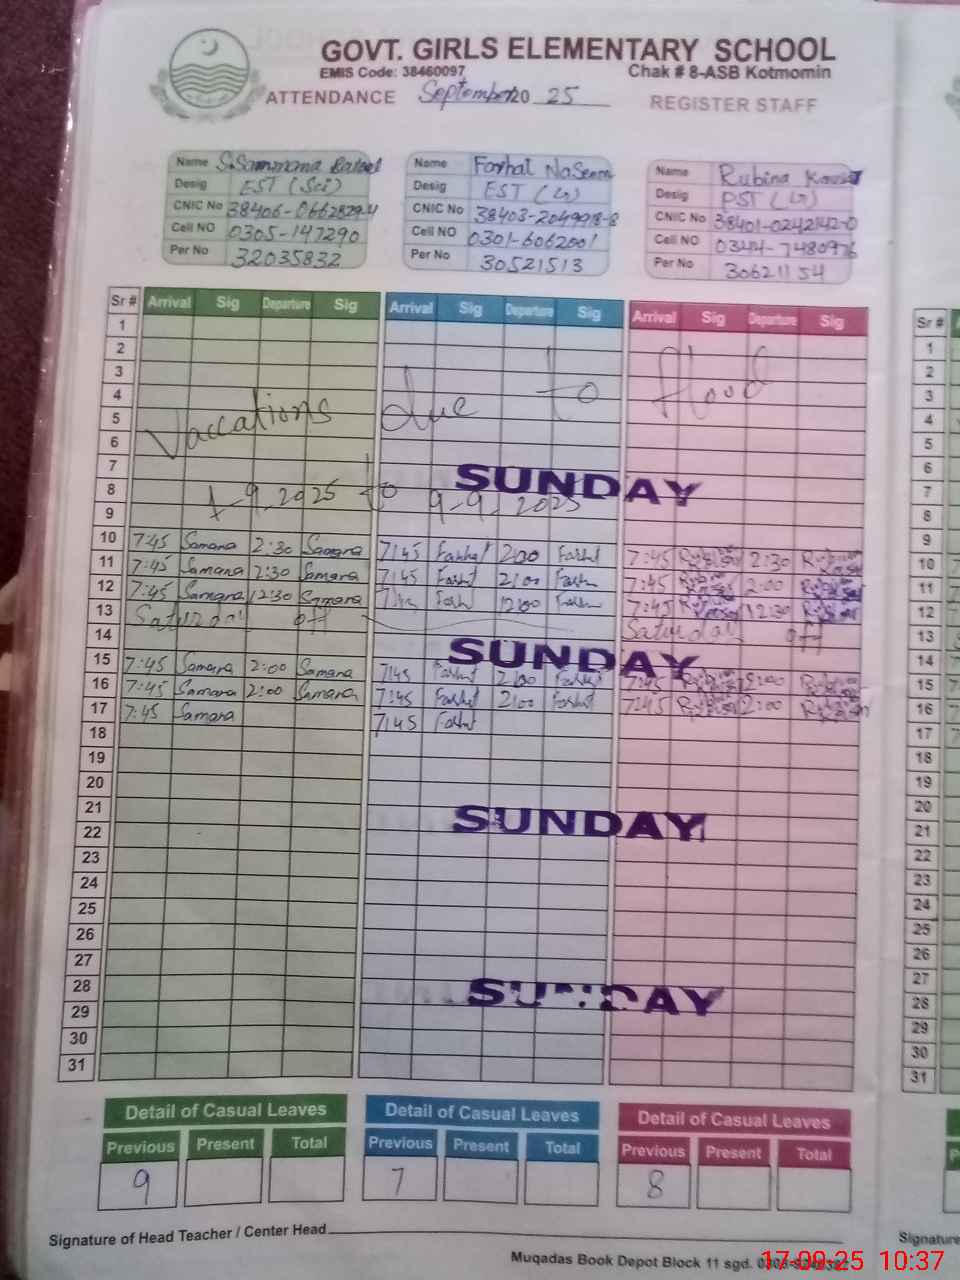 GOVT. GIRLS ELEMENTARY SCHOOL
EMIS Code: 38460097 Chak # 8-ASB Kotmomin
ATTENDANCE September 20 25 REGISTER STAFF
Name S.Sammana Name Farhat Naseem Name Rubina Kausar
Desig EST (Sci) Desig EST (G) Desig PST (G)
CNIC No 38406-0662829-4 CNIC No 38403-2049918-8 CNIC No 38401-0242142-0
Cell NO 0305-147290 Cell NO 0301-6062001 Cell NO 0344-7480976
Per No 32035832 Per No 30521513 Per No 30621154
Sr # Arrival Sig Departure Sig Arrival Sig Departure Sig Arrival Sig Departure Sig Sr #
1 1
2 2
3 3
4 4
5 Vaccations due to flood 5
6 6
7 SUNDAY 7
8 1-9-2025 to 9-9-2025 8
9 9
10 7:45 Samana 2:30 Samana 7:45 Farhat 2:00 Farhat 7:45 2:30 10
11 7:45 Samana 2:30 Samana 7:45 Farhat 2:00 7:45 2:00 11
12 7:45 Samana 12:30 Samana 12:00 7:45 12:30 12
13 Saturday off Saturday off 13
14 SUNDAY 14
15 7:45 Samana 2:00 Samana 7:45 Farhat 2:00 Farhat 7:45 2:00 15
16 7:45 Samana 2:00 Samana 7:45 Farhat 2:00 Farhat 7:45 2:00 16
17 7:45 Samana 7:45 Farhat 17
18 18
19 19
20 20
21 SUNDAY 21
22 22
23 23
24 24
25 25
26 26
27 27
28 SUNDAY 28
29 29
30 30
31 31
Detail of Casual Leaves Detail of Casual Leaves Detail of Casual Leaves
Previous Present Total Previous Present Total Previous Present Total
9 7 8
Signature of Head Teacher / Center Head
Muqadas Book Depot Block 11 sgd.
17.09.25 10:37